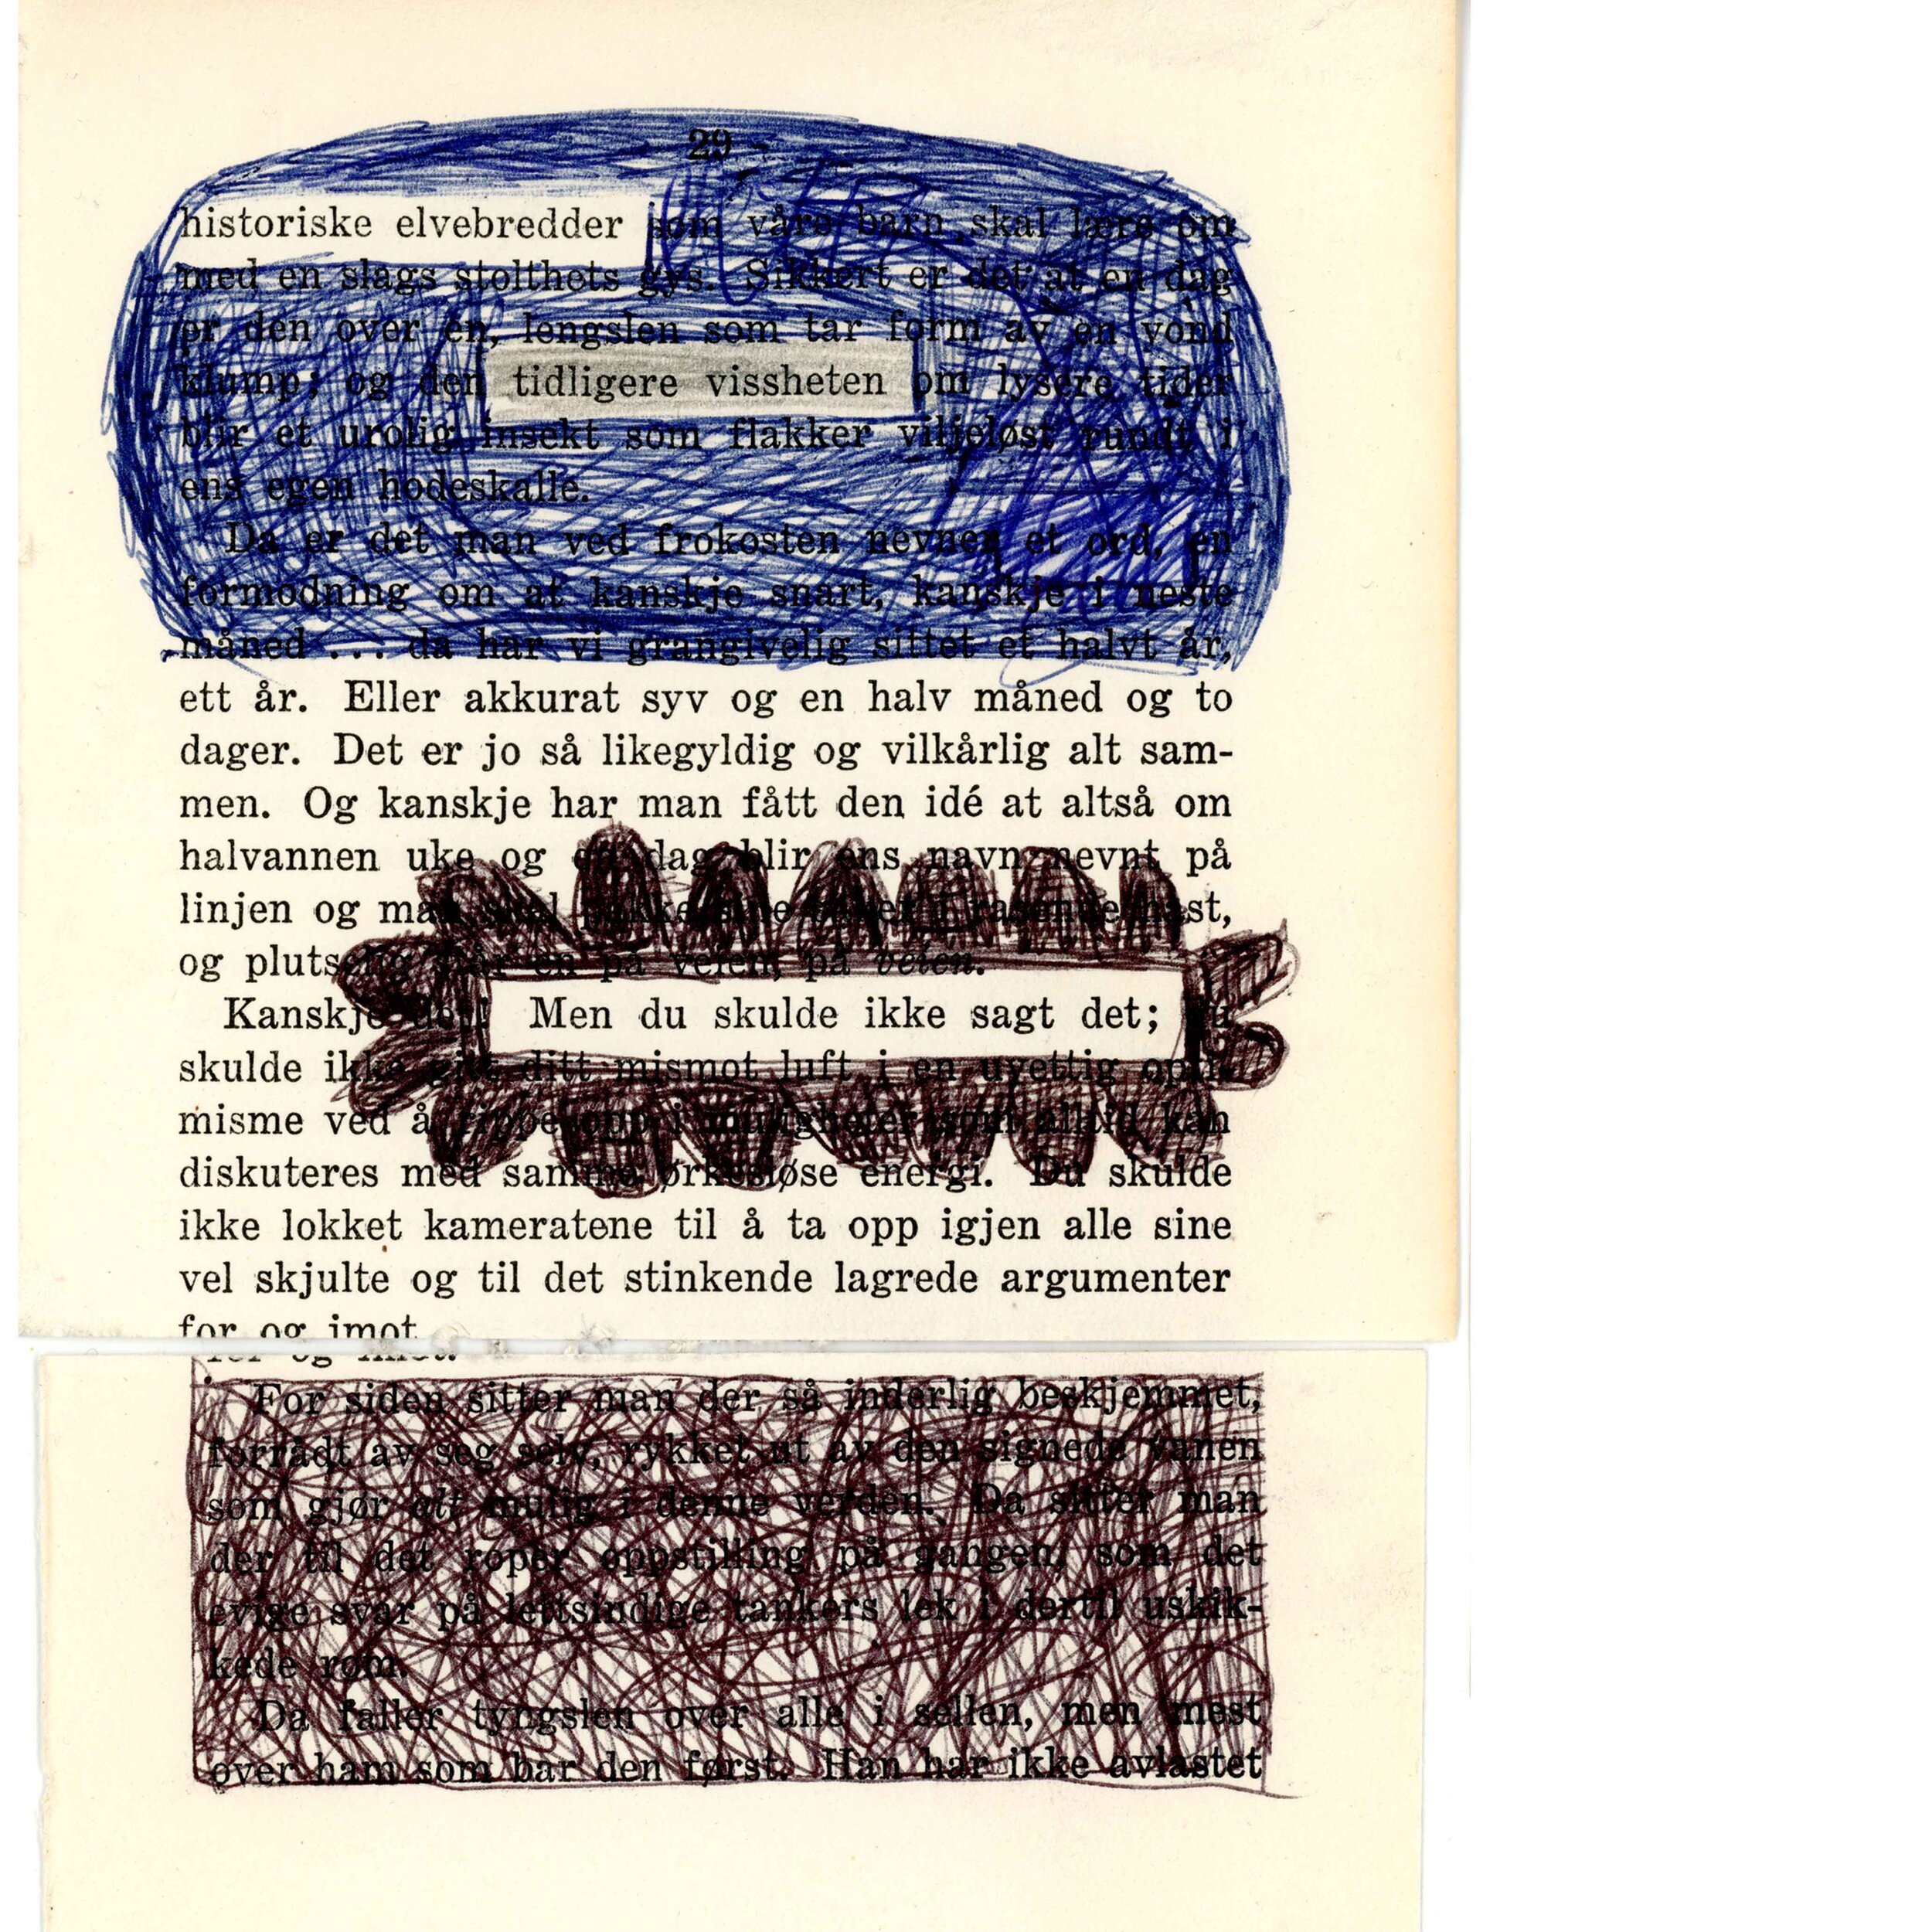 29
historiske elvebredder som våre barn skal lære om
med en slags stolthets gys. Sikkert er det at en dag
er den over en, lengslen som tar form av en vond
klump; og den tidligere vissheten om lysere tider
blir et urolig insekt som flakker viljeløst rundt i
ens egen hodeskalle.
Da er det man ved frokosten nevner et ord, en
formodning om at kanskje snart, kanskje i neste
måned ... da har vi grangivelig sittet et halvt år,
ett år. Eller akkurat syv og en halv måned og to
dager. Det er jo så likegyldig og vilkårlig alt sam-
men. Og kanskje har man fått den idé at altså om
halvannen uke og en dag blir ens navn nevnt på
linjen og man skal pakke sine i rasende hast,
og plutselig står en på veien, på veien.
Kanskje det! Men du skulde ikke sagt det; du
skulde ikke gitt ditt mismot luft i en uvettig opti-
misme ved å rippe opp i muligheter som alltid kan
diskuteres med samme ørkesløse energi. Du skulde
ikke lokket kameratene til å ta opp igjen alle sine
vel skjulte og til det stinkende lagrede argumenter
for og imot
for og imot.
For siden sitter man der så inderlig beskjemmet,
forrådt av seg selv, rykket ut av den signede vanen
som gjør alt mulig i denne verden. Da sitter man
der til det roper oppstilling på gangen, som det
evige svar på lettsindige tankers lek i dertil uskik-
kede rom.
Da faller tyngslen over alle i sellen, men mest
over ham som bar den først. Han har ikke avlastet